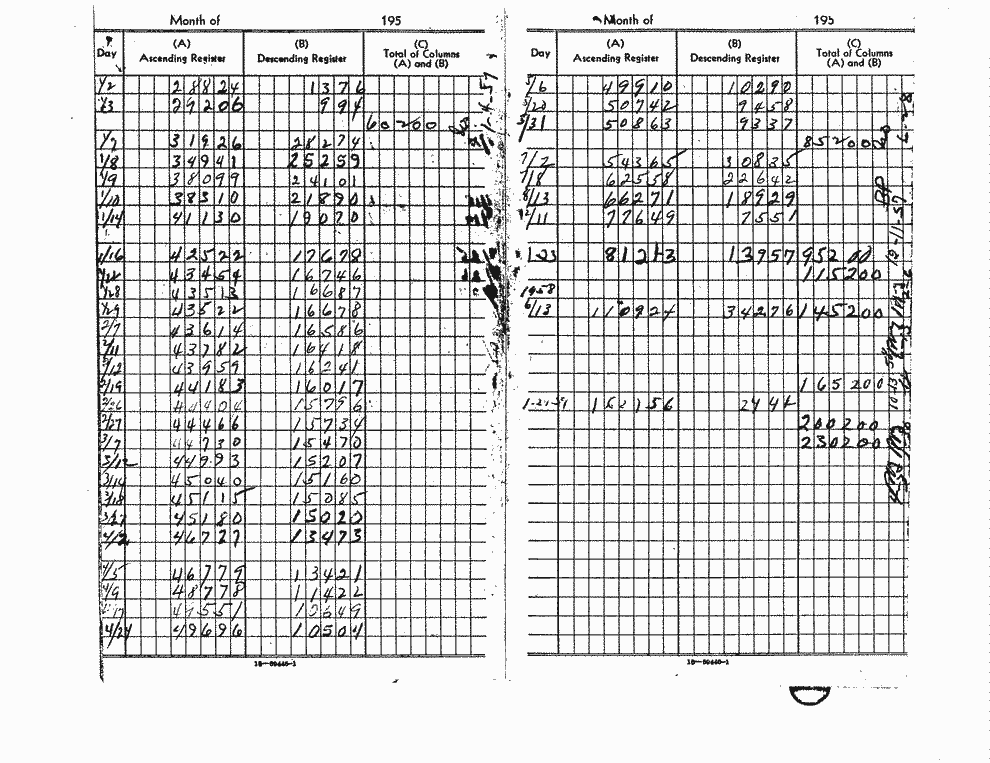 Month of 195
Day (A) Ascending Register (B) Descending Register (C) Total of Columns (A) and (B)
1/2 28824 1376
1/3 29206 994
60200
1/7 31926 28274
1/8 34941 25259
1/9 38099 24101
1/10 38310 21890
1/14 41130 19070
1/16 42522 17678
43454 16746
1/28 43513 16687
1/29 43522 16678
2/7 43614 16586
2/11 43782 16418
2/12 43959 16241
2/19 44183 16017
2/26 44404 15796
2/27 44466 15734
3/7 44730 15470
3/12 44993 15207
3/14 45040 15160
3/18 45115 15085
3/27 45180 15020
4/2 46727 13473
4/5 46779 13421
4/9 48778 11422
4/17 49551 10649
4/24 49696 10504
1-4-57
Month of 195
Day (A) Ascending Register (B) Descending Register (C) Total of Columns (A) and (B)
5/6 49910 10290
5/20 50742 9458
5/31 50863 9337
85200
7/2 54365 30835
7/8 62558 22642
8/13 66271 18929
12/11 77649 7551
1-23 81243 13957 95200
115200
1958
6/13 110924 34276 145200
165200
2444
200200
230200